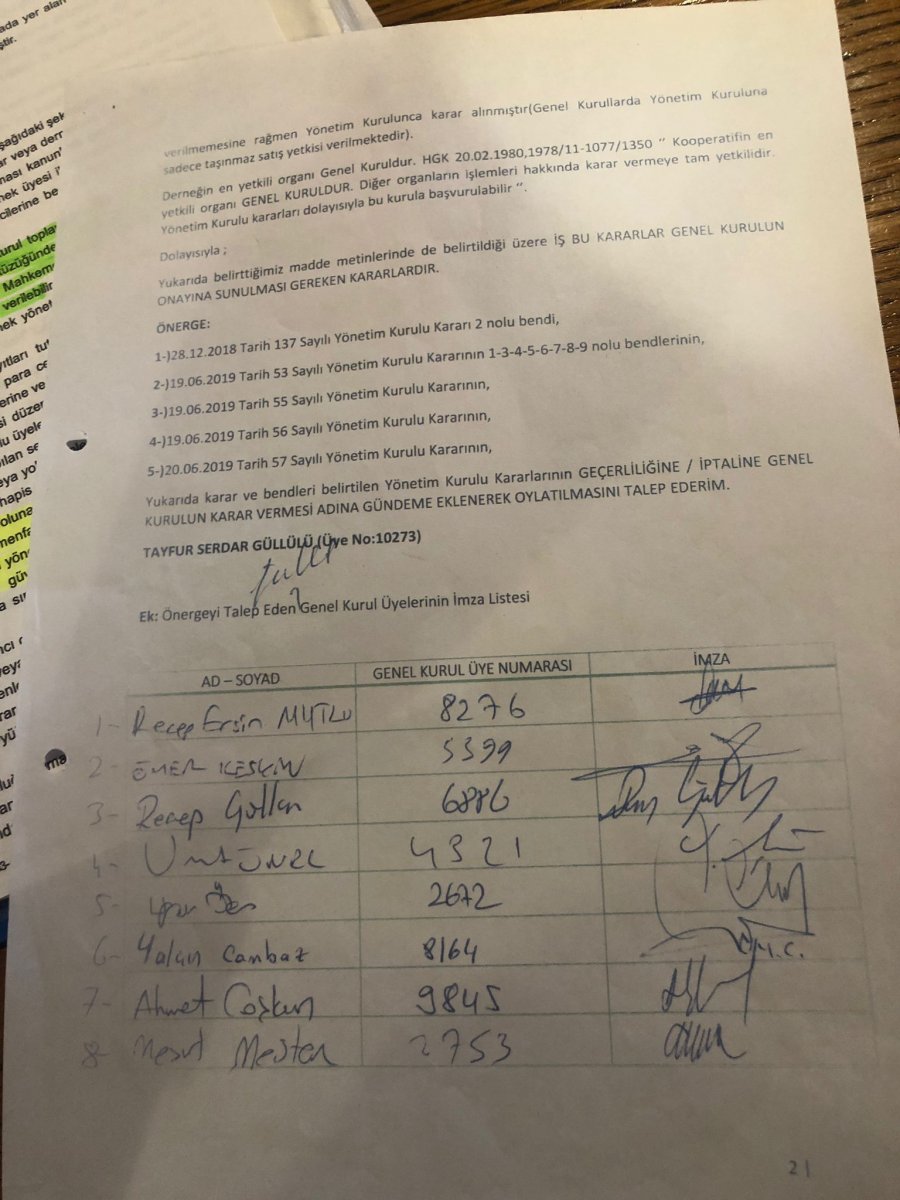 ada yer alan
ştir.
şağıdaki şek
ar veya derr
ması kanun'
nek üyesi i'
cilerine be
urul topla
üzüğünde
Mahkeme
verilebilir
nek yönet
yıtları tu
para ce
erine ve
si düzer
lu üyele
pılan se
eya yo'
hapis
oluna
menfa
yön
gü
a sır
verilmemesine rağmen Yönetim Kurulunca karar alınmıştır(Genel Kurullarda Yönetim Kuruluna
sadece taşınmaz satış yetkisi verilmektedir).
Derneğin en yetkili organı Genel Kuruldur. HGK 20.02.1980,1978/11-1077/1350 " Kooperatifin en
yetkili organı GENEL KURULDUR. Diğer organların işlemleri hakkında karar vermeye tam yetkilidir.
Yönetim Kurulu kararları dolayısıyla bu kurula başvurulabilir ".
Dolayısıyla ;
Yukarıda belirttiğimiz madde metinlerinde de belirtildiği üzere İŞ BU KARARLAR GENEL KURULUN
ONAYINA SUNULMASI GEREKEN KARARLARDIR.
ÖNERGE:
1-)28.12.2018 Tarih 137 Sayılı Yönetim Kurulu Kararı 2 nolu bendi,
2-)19.06.2019 Tarih 53 Sayılı Yönetim Kurulu Kararının 1-3-4-5-6-7-8-9 nolu bendlerinin,
3-)19.06.2019 Tarih 55 Sayılı Yönetim Kurulu Kararının,
4-)19.06.2019 Tarih 56 Sayılı Yönetim Kurulu Kararının,
5-)20.06.2019 Tarih 57 Sayılı Yönetim Kurulu Kararının,
Yukarıda karar ve bendleri belirtilen Yönetim Kurulu Kararlarının GEÇERLİLİĞİNE / İPTALİNE GENEL
KURULUN KARAR VERMESİ ADINA GÜNDEME EKLENEREK OYLATILMASINI TALEP EDERİM.
TAYFUR SERDAR GÜLLÜLÜ (Üye No:10273)
Ek: Önergeyi Talep Eden Genel Kurul Üyelerinin İmza Listesi
AD – SOYAD GENEL KURUL ÜYE NUMARASI İMZA
1- Recep Ersin MUTLU 8276
2- ÖMER KESKİN 5399
3- Recep Güllen 6886
4- Ümit ÜNAL 4321
5- 2672
6- Yalçın Cambaz 8164
7- Ahmet Coşkun 9845
8- Mesut 2753
2 |